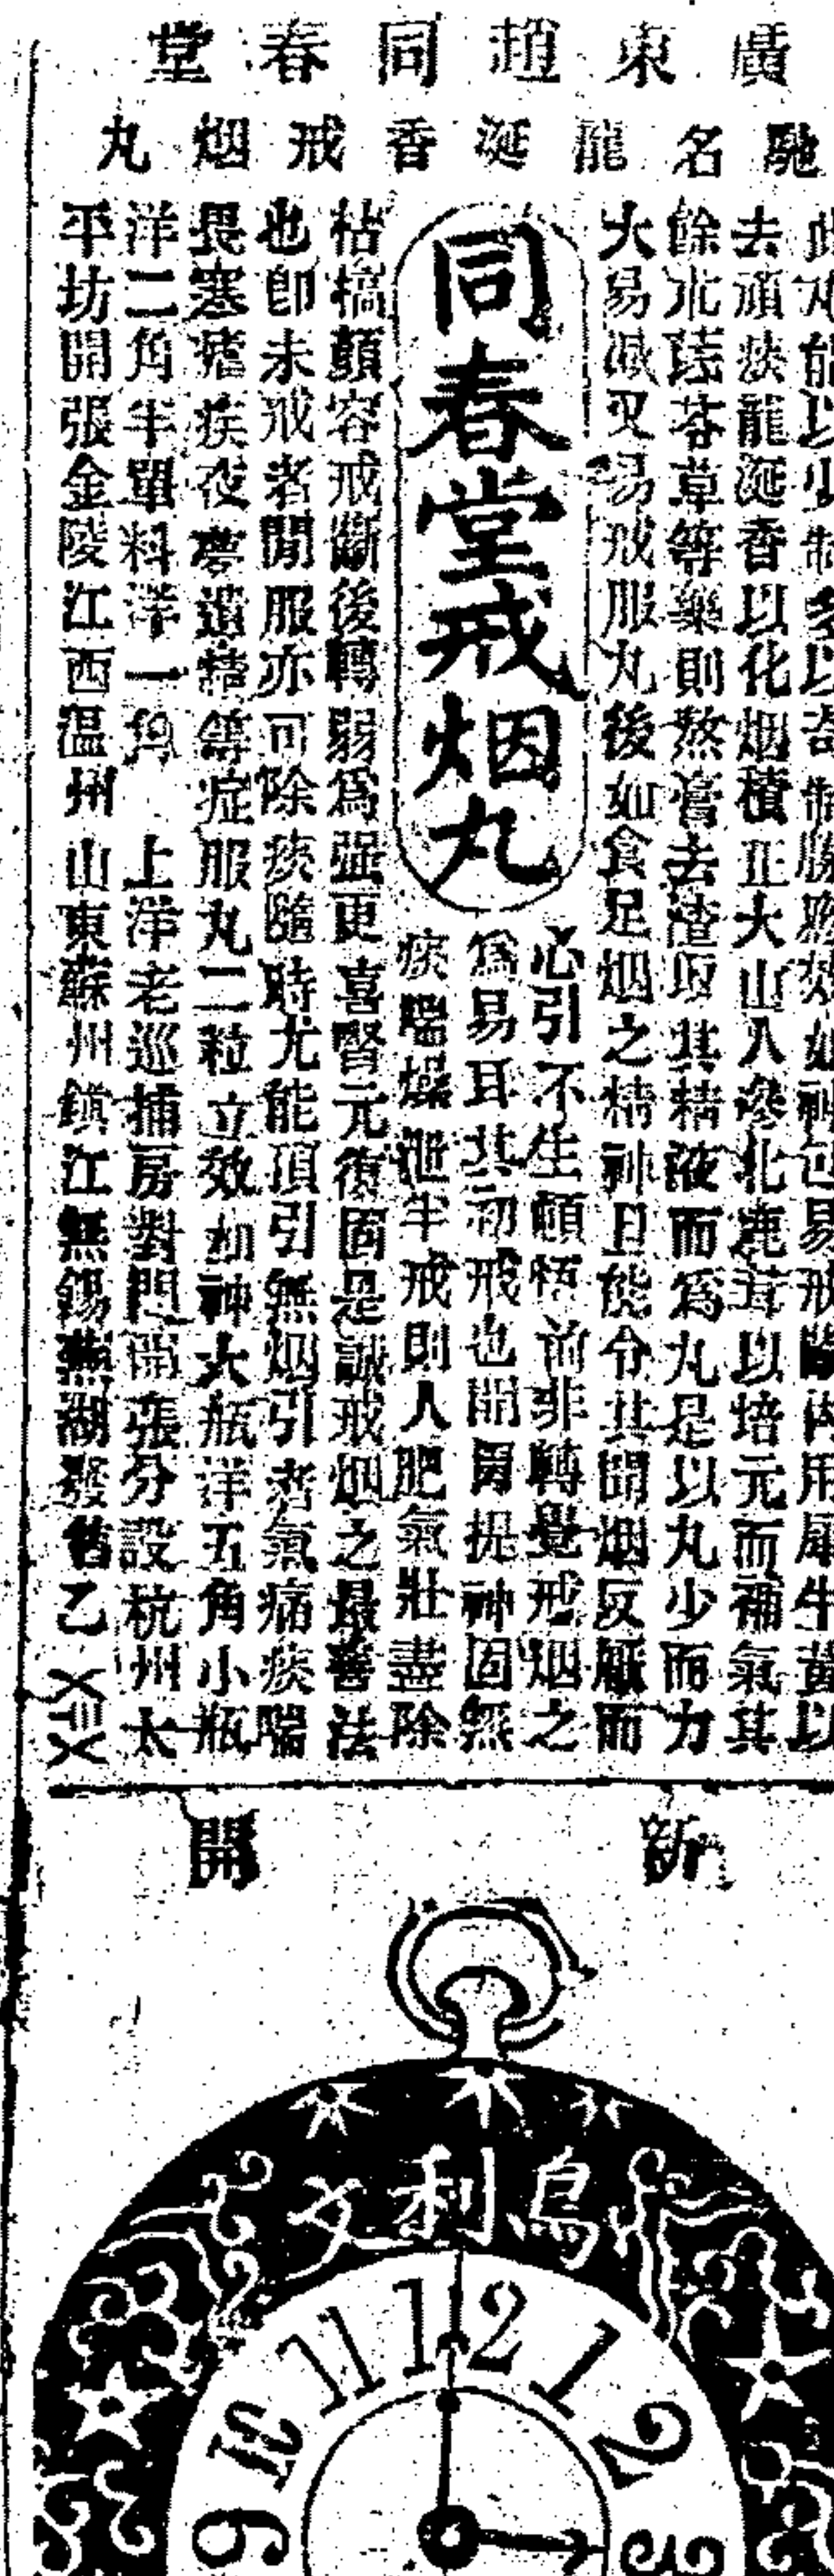 廣東趙同春堂
馳名龍涎香戒烟丸
此丸能以少制多以奇制勝將效如神包易戒斷内用犀牛黃以
去頑痰龍涎香以化烟積正大山人參北鹿茸以培元而補氣其
餘北芪苓草等藥則熬膏去渣取其精液而爲丸是以丸少而力
大易減又易戒服丸後如食足烟之精神且能令其聞烟反厭而
同春堂戒烟丸
心引不生頓悟前非轉覺戒烟之
爲易耳其初戒也開胃提神固無
痰喘燥泄半戒則人肥氣壯盡除
枯槁顏容戒斷後轉弱爲强更喜腎元復固是誠戒烟之最善法
也卽未戒者閒服亦可除痰隨時尤能頂引無烟引者氣痛痰喘
畏寒瘧疾夜夢遺精等症服丸二粒立效如神大瓶洋五角小瓶
洋二角半單料洋一角 上洋老巡捕房對門開張分設杭州太
平坊開張金陵江西温州山東蘇州鎭江無錫蕪湖發售乙
新開
烏利文
11 12 1 2
10
9 3